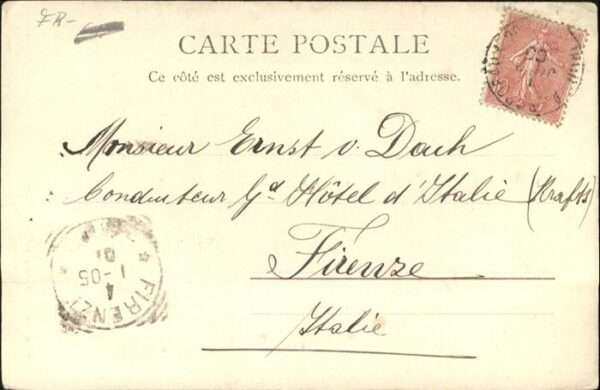 FR-
CARTE POSTALE
Ce côté est exclusivement réservé à l'adresse.
Monsieur Ernst v. Dach
Conducteur Gd Hôtel d'Italie (Krafts)
Firenze
Italie
FIRENZE
4
1-05